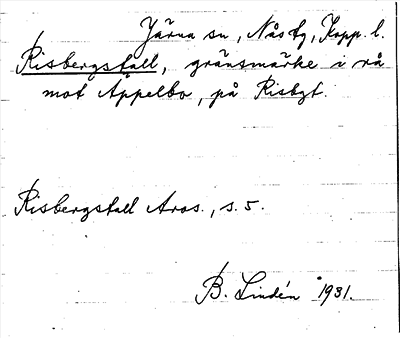 Järna sn, Nås tg, Kopp. l.
Risbergstall, gränsmärke i rå
mot Äppelbo, på Risbgt.
Risbergstall Aros., s. 5.
B. Lindén 1931.